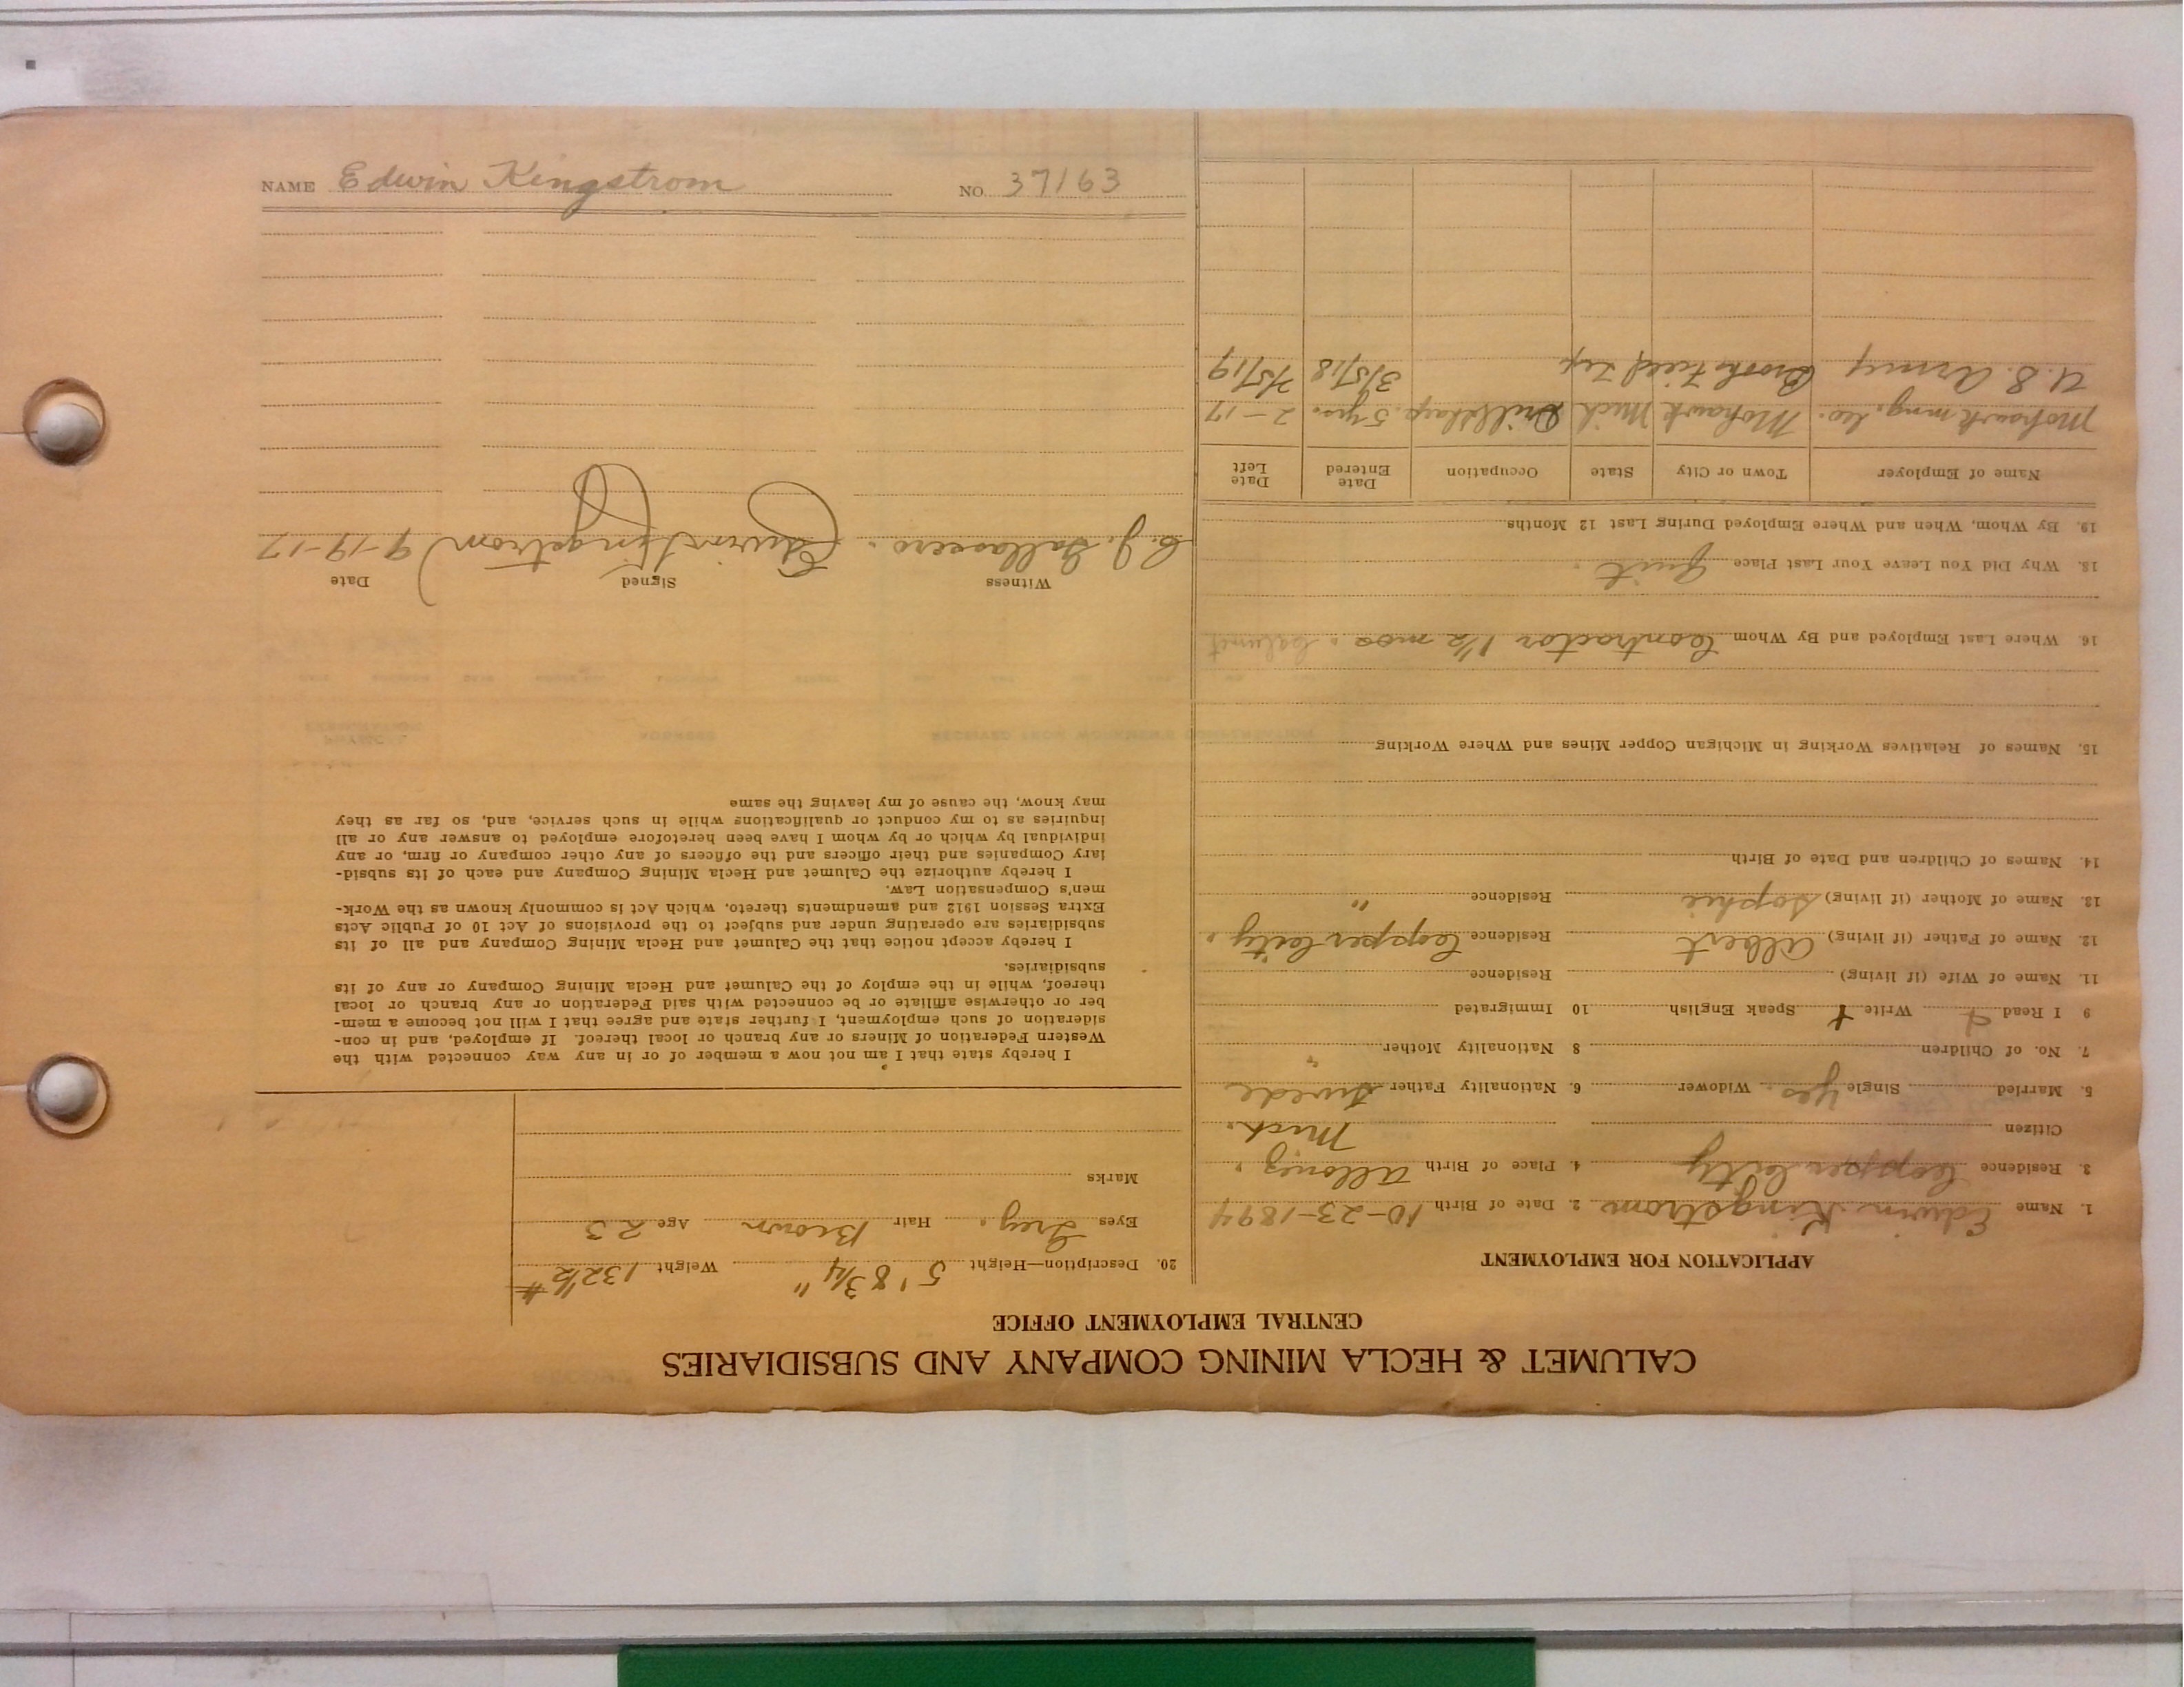 CALUMET & HECLA MINING COMPANY AND SUBSIDIARIES
CENTRAL EMPLOYMENT OFFICE
APPLICATION FOR EMPLOYMENT
1. Name Edwin Kingstrom 2. Date of Birth 10-23-1894
3. Residence Copper City 4. Place of Birth Allouez,
Citizen Mich.
5. Married Single yes. Widower 6. Nationality Father Swede
7. No. of Children 8 Nationality Mother "
9 I Read Write Speak English 10 Immigrated
11. Name of Wife (if living) Residence
12. Name of Father (if living) Albert Residence Copper City,
13. Name of Mother (if living) Sophie Residence "
14. Names of Children and Date of Birth
15. Names of Relatives Working in Michigan Copper Mines and Where Working
16. Where Last Employed and By Whom Contractor 1½ mos. Calumet
18. Why Did You Leave Your Last Place Quit.
19. By Whom, When and Where Employed During Last 12 Months
Name of Employer Town or City State Occupation Date Entered Date Left
Mohawk Mng. Co. Mohawk Mich 5 yrs. 2-17
U.S. Army 3/5/18 7/5/19
20. Description—Height 5' 8 3/4" Weight 132½ #
Eyes Grey. Hair Brown Age 23
Marks
I hereby state that I am not now a member of or in any way connected with the
Western Federation of Miners or any branch or local thereof. If employed, and in con-
sideration of such employment, I further state and agree that I will not become a mem-
ber or otherwise affiliate or be connected with said Federation or any branch or local
thereof, while in the employ of the Calumet and Hecla Mining Company or any of its
subsidiaries.
I hereby accept notice that the Calumet and Hecla Mining Company and all of its
subsidiaries are operating under and subject to the provisions of Act 10 of Public Acts
Extra Session 1912 and amendments thereto, which Act is commonly known as the Work-
men's Compensation Law.
I hereby authorize the Calumet and Hecla Mining Company and each of its subsid-
iary Companies and their officers and the officers of any other company or firm, or any
individual by which or by whom I have been heretofore employed to answer any or all
inquiries as to my conduct or qualifications while in such service, and, so far as they
may know, the cause of my leaving the same
Witness Signed Date
C. J. Edwin Kingstrom 9-19-17
NAME Edwin Kingstrom NO. 37163